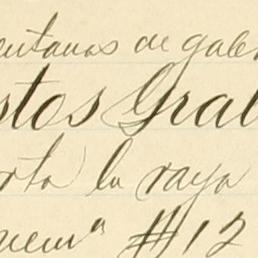 entanas de gale
stos Gral
rta la raya
quemª #12